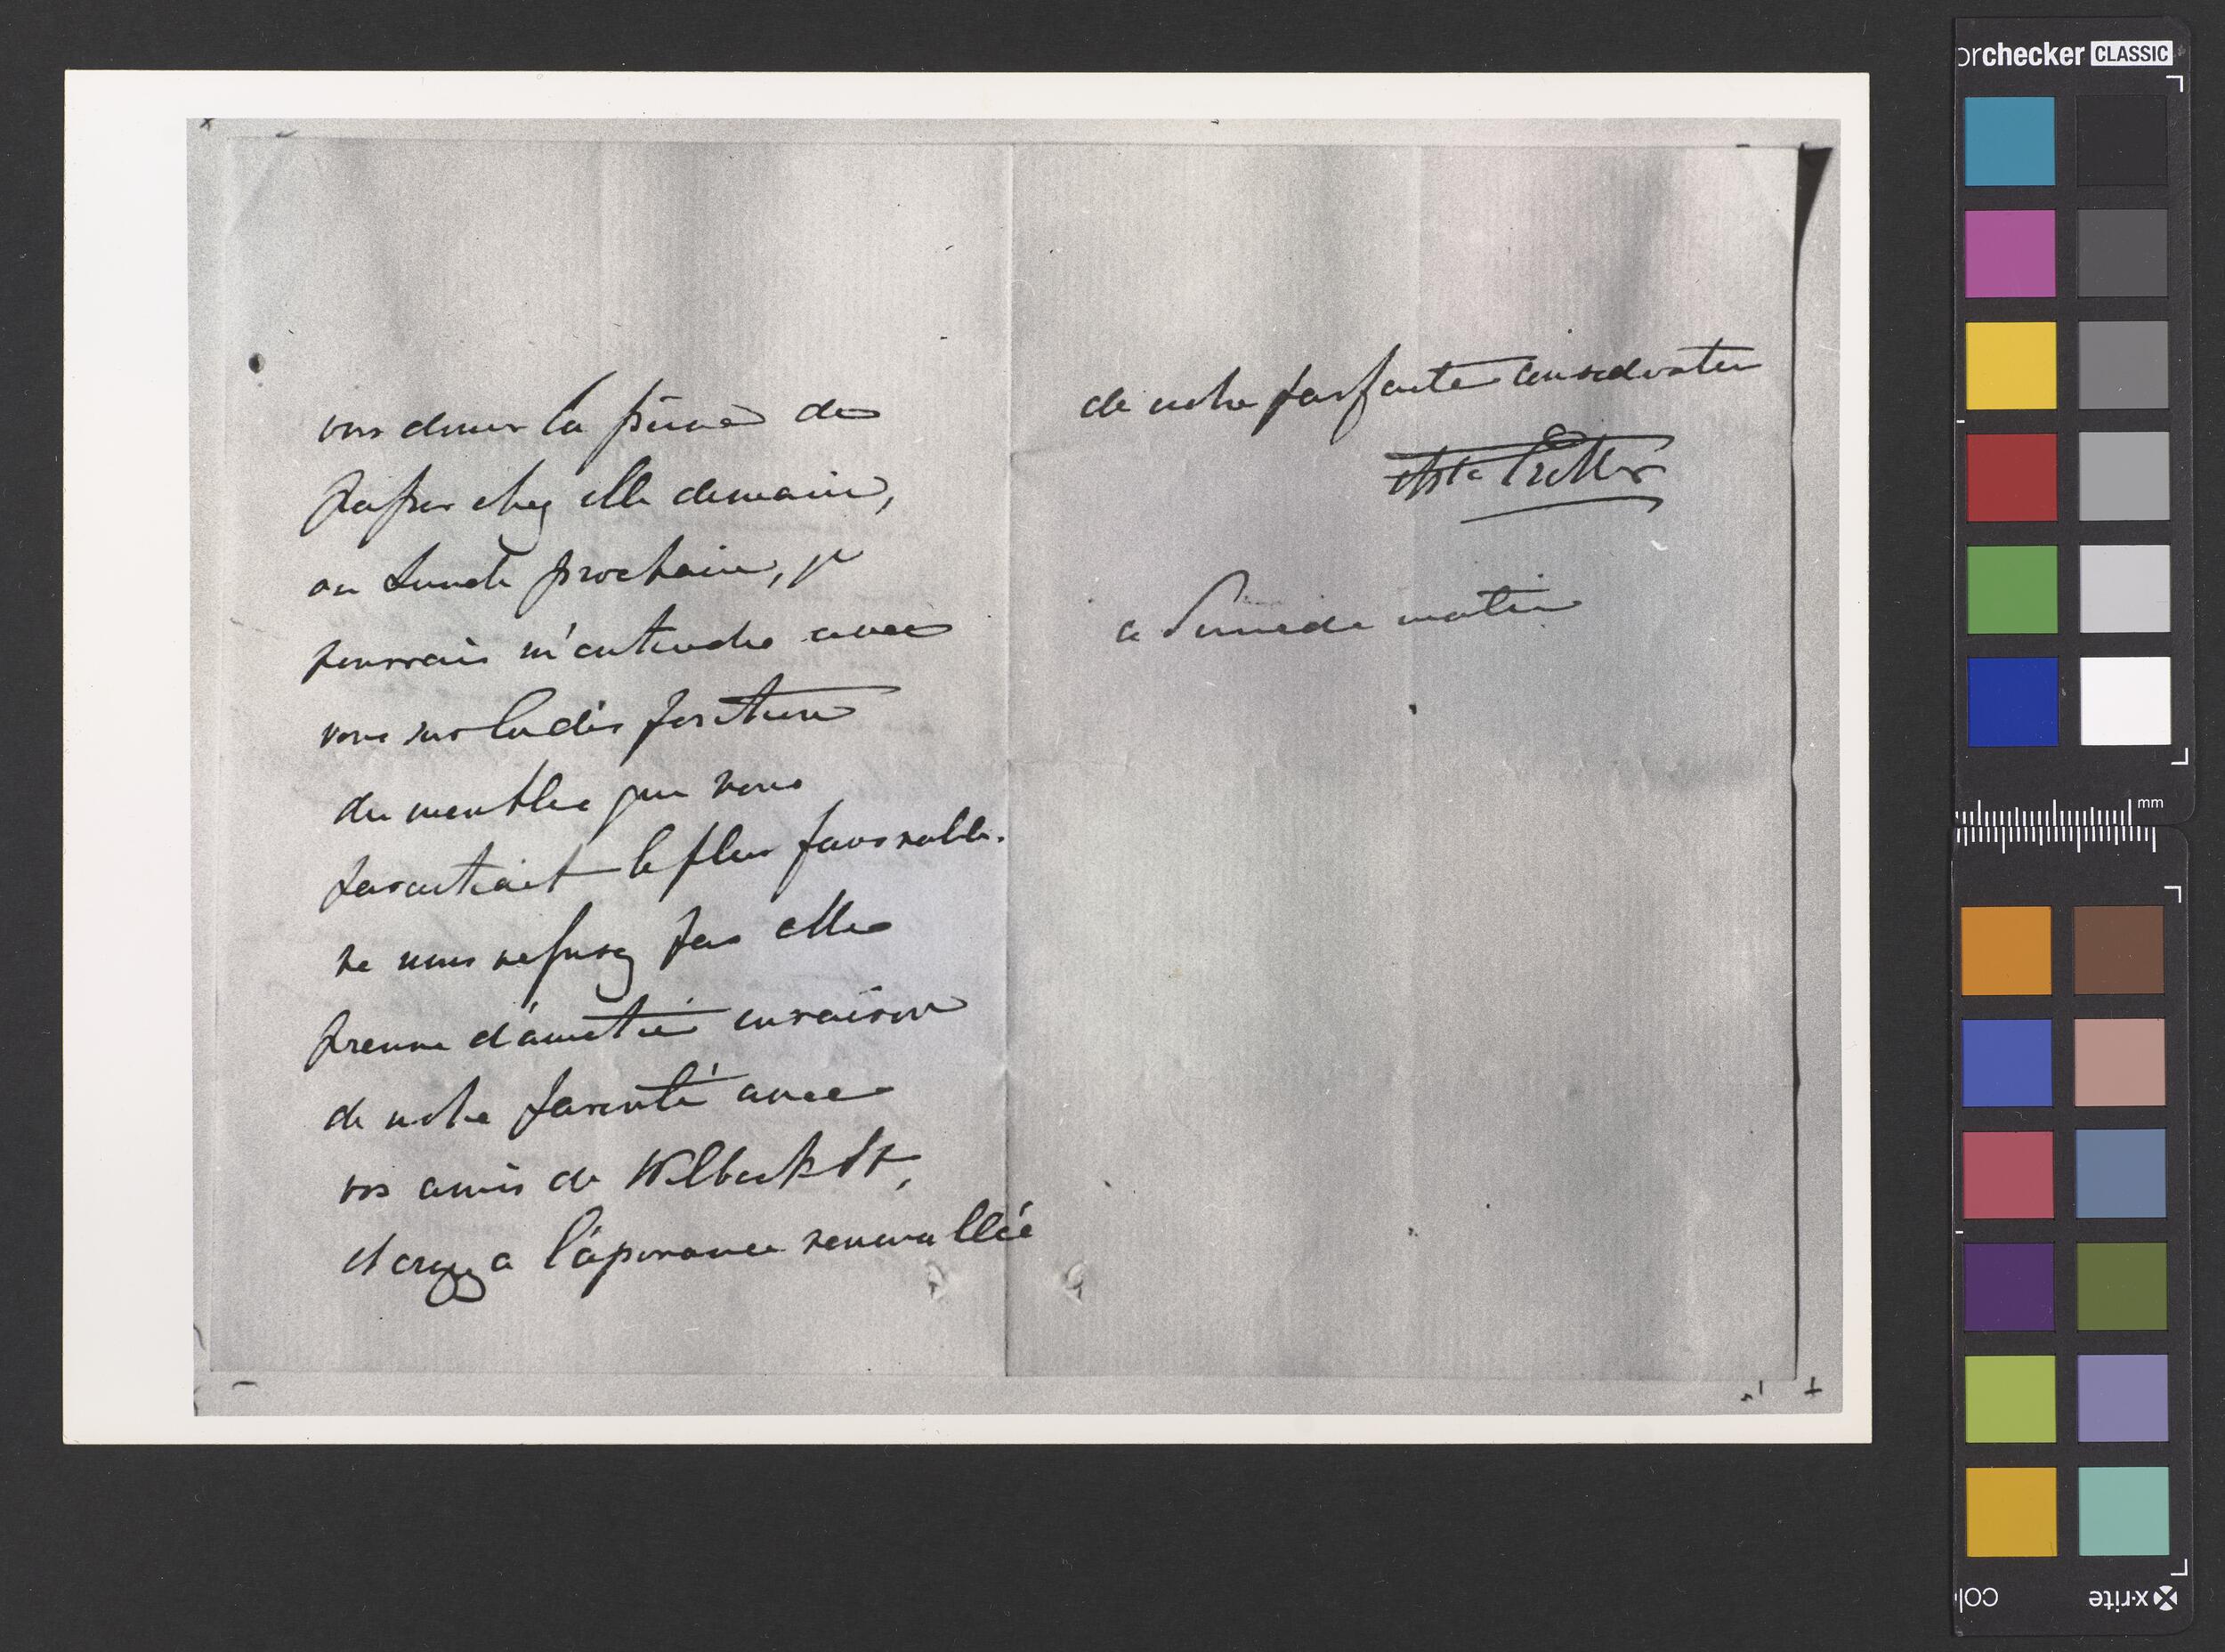 vous donner la peine de
passer chez elle demain,
ou Lundi prochain, je
pourrais m'entendre avec
vous sur la dis position
du meuble que vous
paraitrait le plus favorable.
ne nous refusez pas cette
preuve d'amitié en raison
de notre parenté avec
vos amis de
et croyez a l'áporance renouvellée
de notre parfaite consideration
ce Samedi matin
orchecker CLASSIC
mm
x-rite
colo